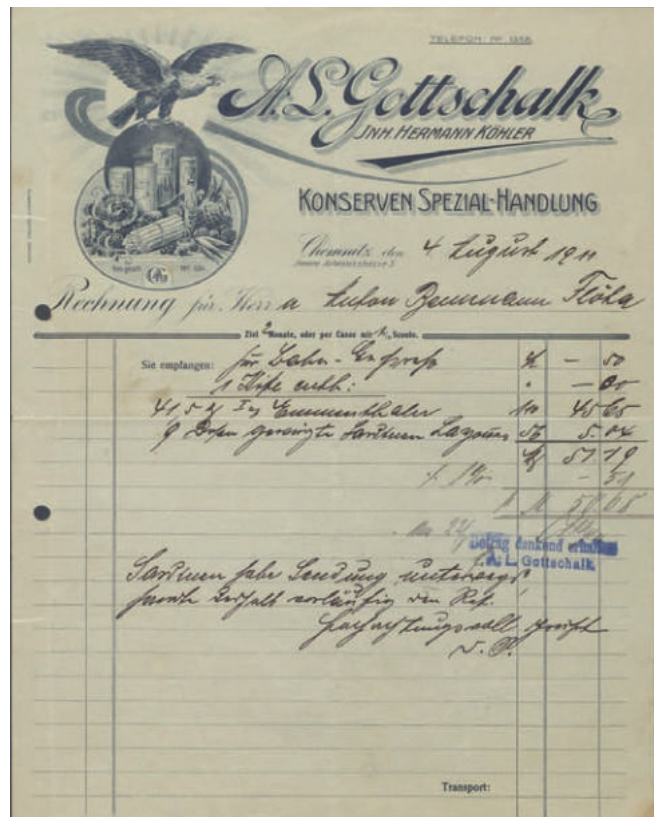 TELEFON: Nr 1358.
A. L. Gottschalk
INH. HERMANN KÖHLER
KONSERVEN SPEZIAL-HANDLUNG
Chemnitz, den 4 August 1911
Rechnung für Herrn Anton Baumann Flöha
Ziel 2 Monate, oder per Cassa mit 1%, Sconto.
Sie empfangen: für Bahn- — 50
1 Kiste enth:
41,5 Emmenthaler 110 45 65
9 Dosen Sardinen 56 5.04
51.19
1% — 51
50 68
Betrag dankend erhalten
A. L. Gottschalk
Sardinen habe Sendung unterwegs
vorläufig den Rest.
Hochachtungsvoll
Transport: